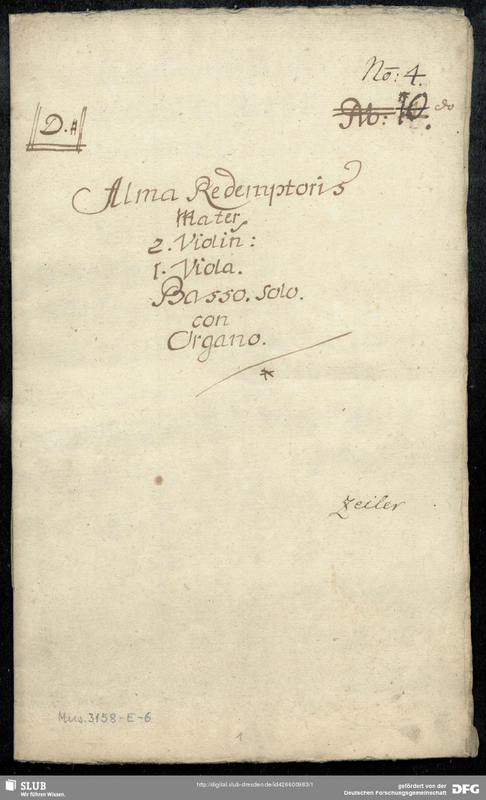 No: 4.
No: 10.
D.#
Alma Redemptoris
Mater
2. Violin:
1. Viola.
Basso. Solo.
con
Organo.
Zeiler
Mus. 3158-E-6
1
SLUB
Wir führen Wissen.
http://digital.slub-dresden.de/id426600983/1
gefördert von der
Deutschen Forschungsgemeinschaft
DFG